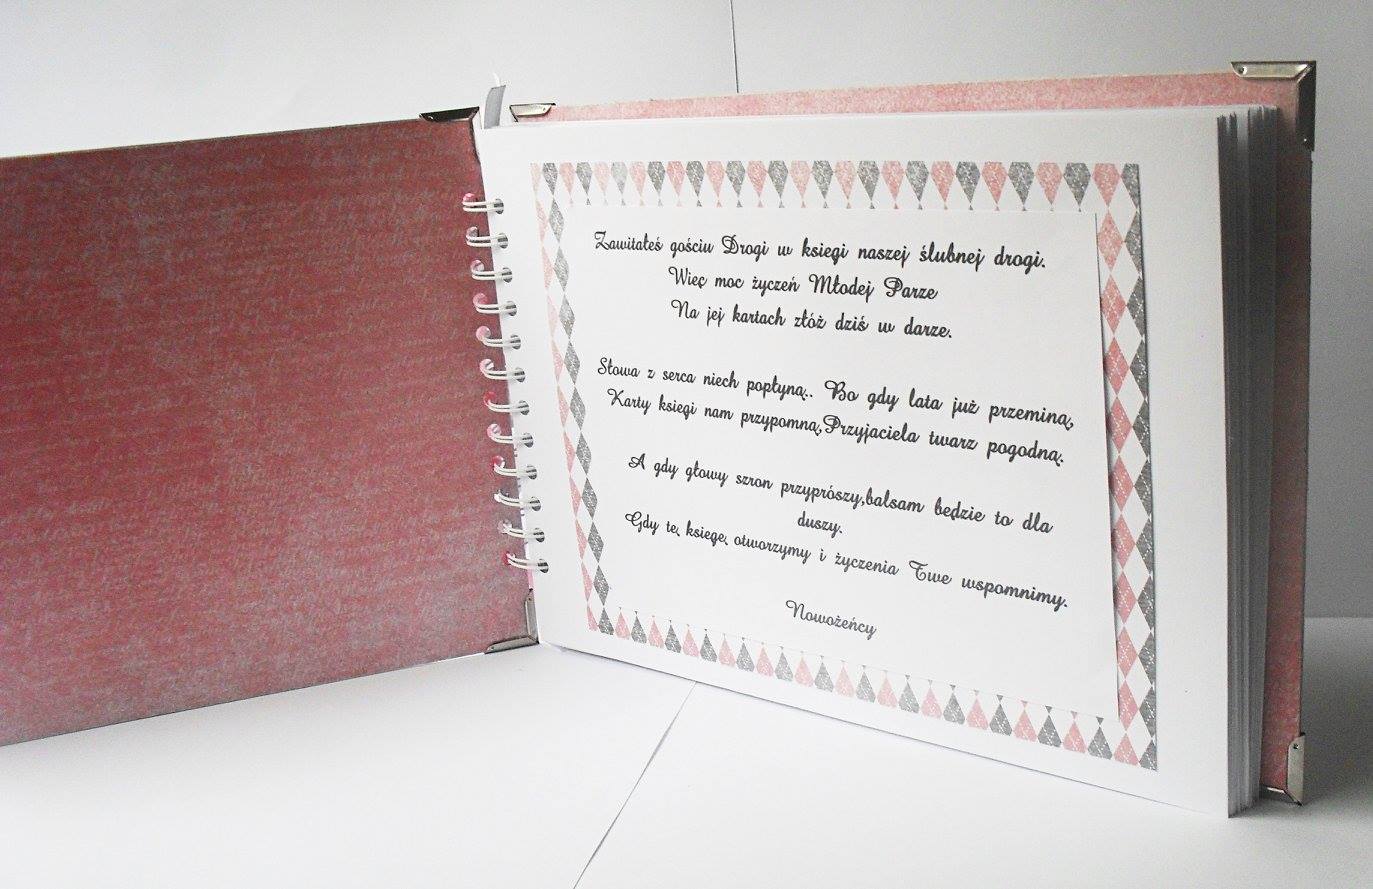 Zawitałeś gościu Drogi w księgi naszej ślubnej drogi.
Więc moc życzeń Młodej Parze
Na jej kartach złóż dziś w darze.
Słowa z serca niech popłyną.. Bo gdy lata już przeminą,
Karty księgi nam przypomną,Przyjaciela twarz pogodną.
A gdy głowy szron przyprószy,balsam będzie to dla
duszy.
Gdy tę księgę otworzymy i życzenia Twe wspomnimy.
Nowożeńcy